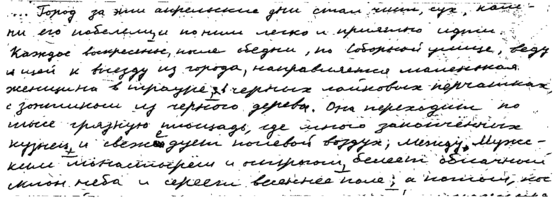 ... Город за эти апрельские дни стал чист, сух, кам-
ни его побелели и по ним легко и приятно идти.
Каждое воскресенье, после обедни, по Соборной улице, веду
щей к выезду из города, направляется маленькая
женщина в трауре, в черных лайковых перчатках,
с зонтиком из черного дерева. Она переходит по
шоссе грязную площадь, где много закопченных
кузниц, и свежо дует полевой воздух; между Мужс-
ким монастырем и острогом, белеет облачный
склон неба и сереет весеннее поле; а потом,